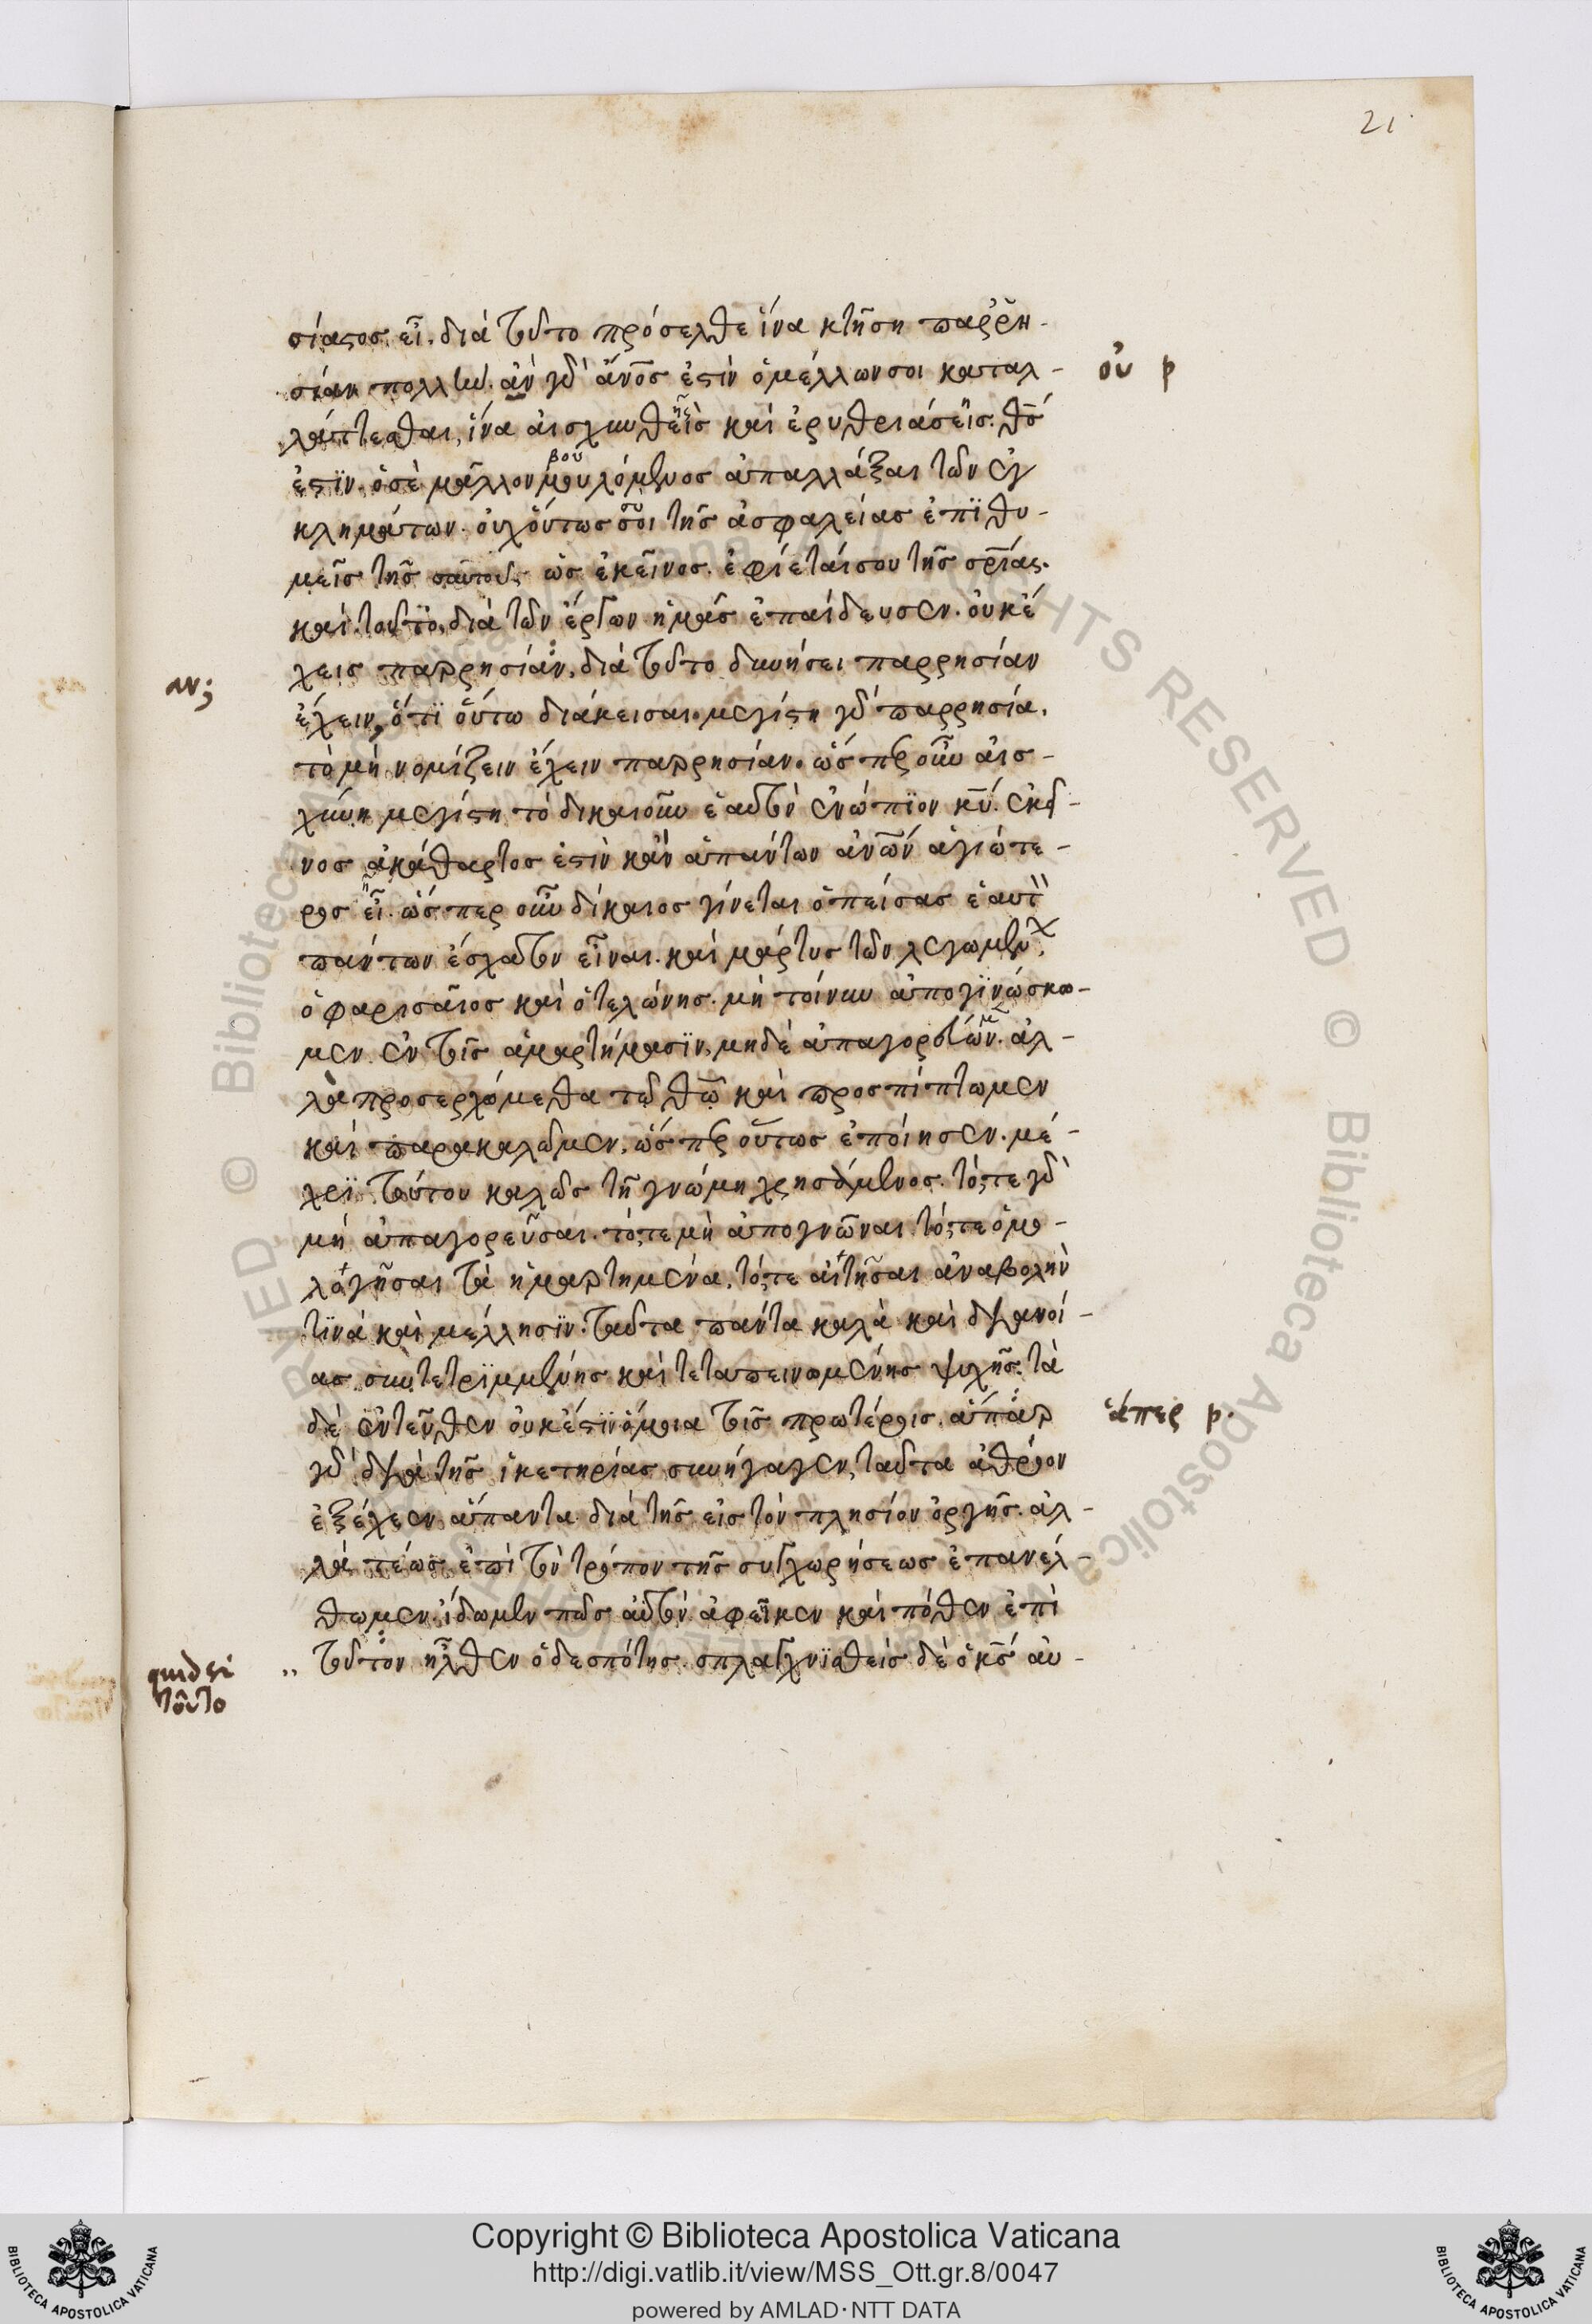 21
σίαστος εἶ. διὰ τοῦτο πρόσελθε ἵνα κτήσῃ παρρη-
σίαν πολλὴν. ἀν γὰρ ἄνος ἐστὶν ὁ μέλλων σοι καταλ-
οὐ p
λάττεσθαι, ἵνα αἰσχυνθεὶς καὶ ἐρυθριάσεις. θς
βου
ἐστὶν ὁ σὲ μᾶλλον μουλόμενος ἀπαλλάξαι τῶν ἐγ
κλημάτων. οὐχ οὕτως σοι τῆς ἀσφαλείας ἐπιθυ-
μεῖς τῆς σαυτοῦ, ὡς ἐκεῖνος ἐφίεταί σου τῆς σρίας.
καὶ τοῦτο διὰ τῶν ἔργων ἡμᾶς ἐπαίδευσεν. οὐκ έ
χεις παρρησίαν, διὰ τοῦτο δυνήσει παρρησίαν
ἔχειν, ὅτι οὕτω διάκεισαι. μεγίστη γὰρ παρρησία.
τὸ μὴ νομίζειν ἔχειν παρρησίαν. ὥσπερ οὖν αἰσ-
χύνη μεγίστη τὸ δικαιοῦν ἑαυτὸν ἐνώπιον κυ. ἐκεῖ-
νος ἀκάθαρτος ἐστὶν κἂν ἁπάντων ἀνων ἁγιώτε-
ρος εἶ. ὥσπερ οὖν δίκαιος γίνεται ὁ πείσας ἑαυτὸν
πάντων ἔσχατον εἶναι. καὶ μάρτυς τῶν λεγομένων
ὁ φαρισαῖος καὶ ὁ τελώνης. μὴ τοίνυν ἀπογινώσκω-
μεν ἐν τοῖς ἁμαρτήμασιν, μηδὲ ἀπαγορεύωμεν. ἀλ-
λὰ προσερχόμεθα τῷ θω καὶ προσπίπτωμεν
καὶ παρακαλῶμεν, ὥσπερ οὕτως ἐποίησεν. μέ-
χρι τούτου καλῶς τῇ γνώμῃ χρησάμενος. τότε γὰρ
μὴ ἀπαγορεῦσαι. τότε μὴ ἀπογνῶναι. τότε ὁμο-
λογῆσαι τὰ ἡμαρτημένα, τότε αἰτῆσαι ἀναβολὴν
τινὰ καὶ μέλλησιν. ταῦτα πάντα καλὰ καὶ διανοί-
ας συντετριμμένης καὶ τεταπεινωμένης ψυχῆς. τὰ
δὲ ἐντεῦθεν οὐκέστιν ὅμοια τοῖς προτέροις. ἅπαρ
εάπερ p.
γὰρ διὰ τῆς ἱκετηρίας συνήγαγεν, ταῦτα ἀθρόον
ἐξέχεεν ἅπαντα διὰ τῆς εἰς τὸν πλησίον ὀργῆς. ἀλ-
λὰ τέως ἐπὶ τὸν τρόπον τῆς συγχωρήσεως ἐπανέλ-
θωμεν. ἴδωμεν πῶς αὐτὸν ἀφεῖκεν καὶ πόθεν ἐπὶ
quid si τοῦτο
τοῦτον ἦλθεν ὁ δεσπότης. σπλαγχνισθεὶς δὲ ὁ κς αυ-
Copyright © Biblioteca Apostolica Vaticana
http://digi.vatlib.it/view/MSS_Ott.gr.8/0047
powered by AMLAD·NTT DATA